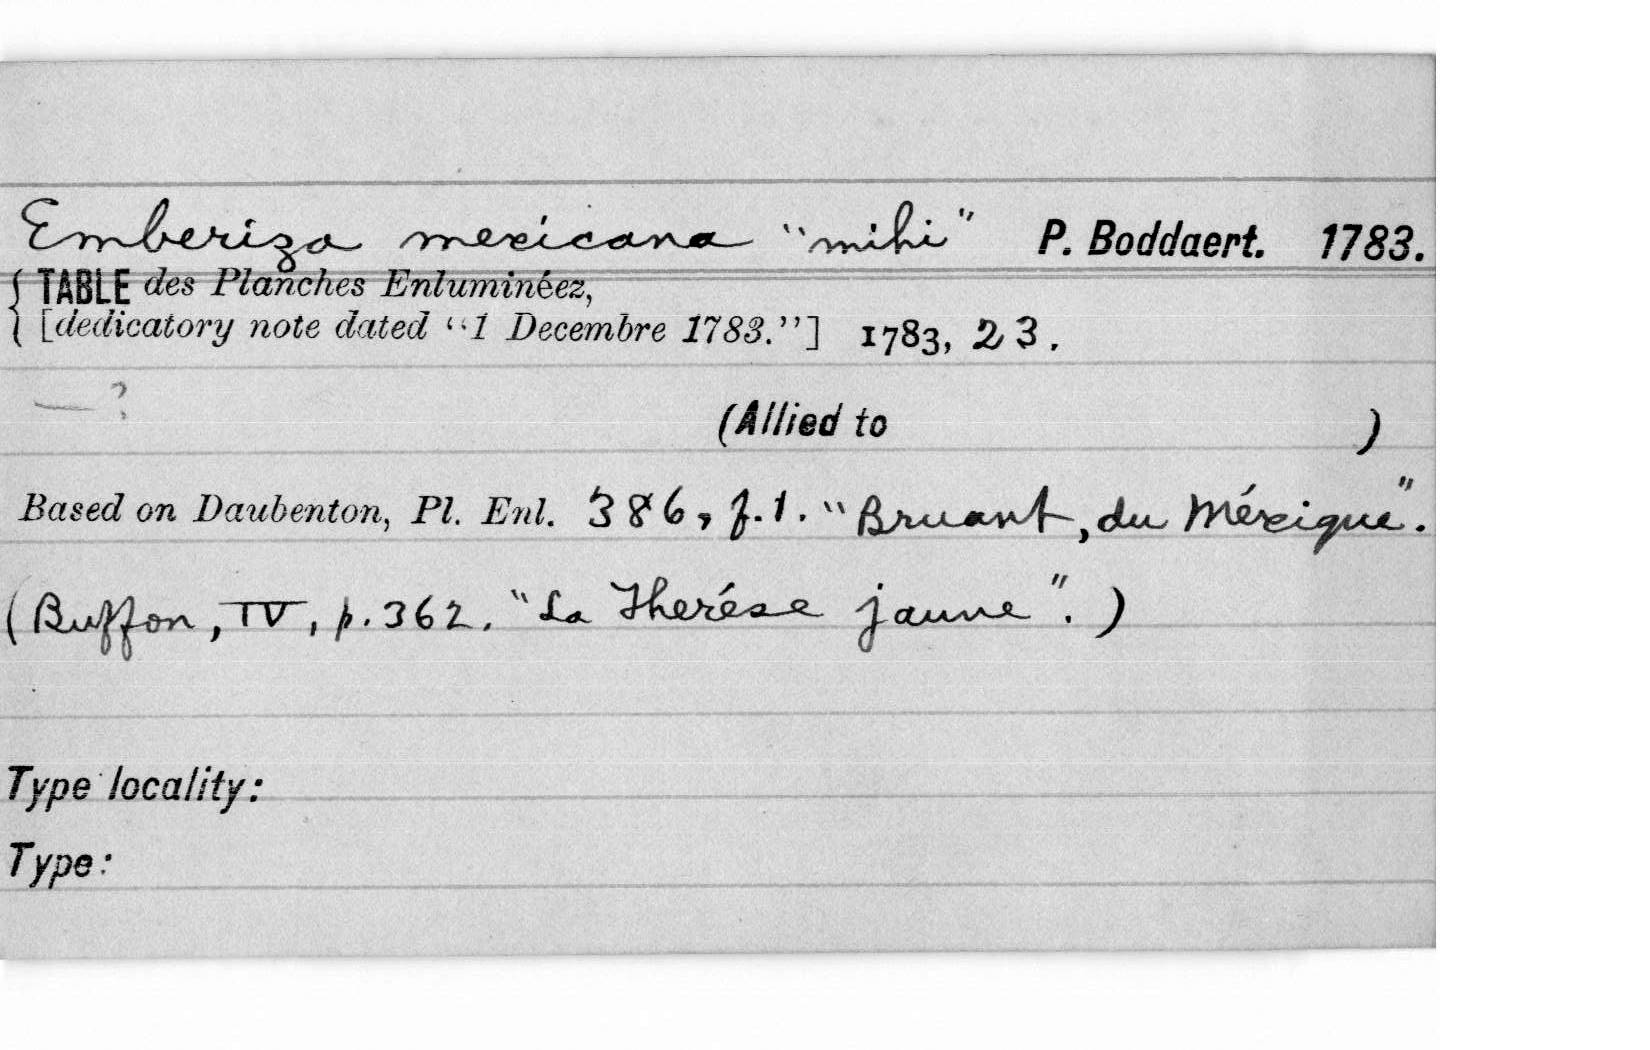 Emberiza mexicana "mihi" P. Boddaert. 1783.
{ TABLE des Planches Enluminéez,
[dedicatory note dated "1 Decembre 1783."] 1783, 23.
— ?
(Allied to )
Based on Daubenton, Pl. Enl. 386, f.1. "Bruant, du Méxique".
(Buffon, IV, p. 362. "La Therése jaune". )
Type locality:
Type: